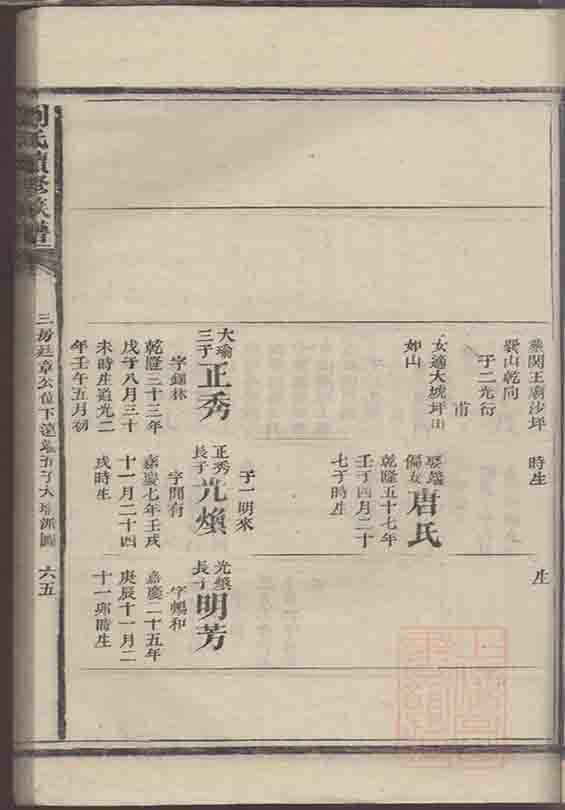 葬關王廟沙坪
巽山乾向
子二光衍
甫
女適大坡坪田
如山
時生
娶
偏女唐氏
乾隆五十七年
壬子四月二十
七子時生
生
大瑜
三子正秀
字鍾林
乾隆三十三年
戊子八月三十
未時生道光二
年壬午五月初
子一明來
正秀
長子光煥
字開有
嘉慶七年壬戌
十一月二十四
戌時生
光煥
長子明芳
字暢和
嘉慶二十五年
庚辰十一月二
十一卯時生
劉氏續修族譜
三房廷章公位下遠
五子大瑜派圖
六五